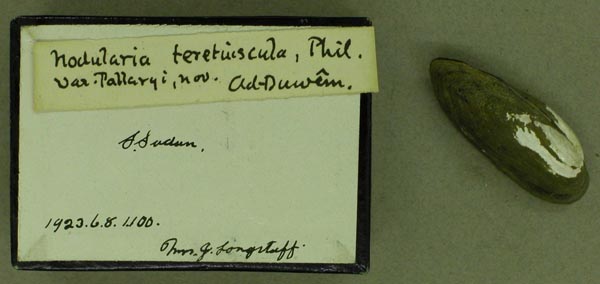 Nodularia teretiuscula, Phil.
var. Pallaryi, nov. Ad-Duwêm.
S. Sudan.
1923.6.8.1100.
Mrs. J. Longstaff.